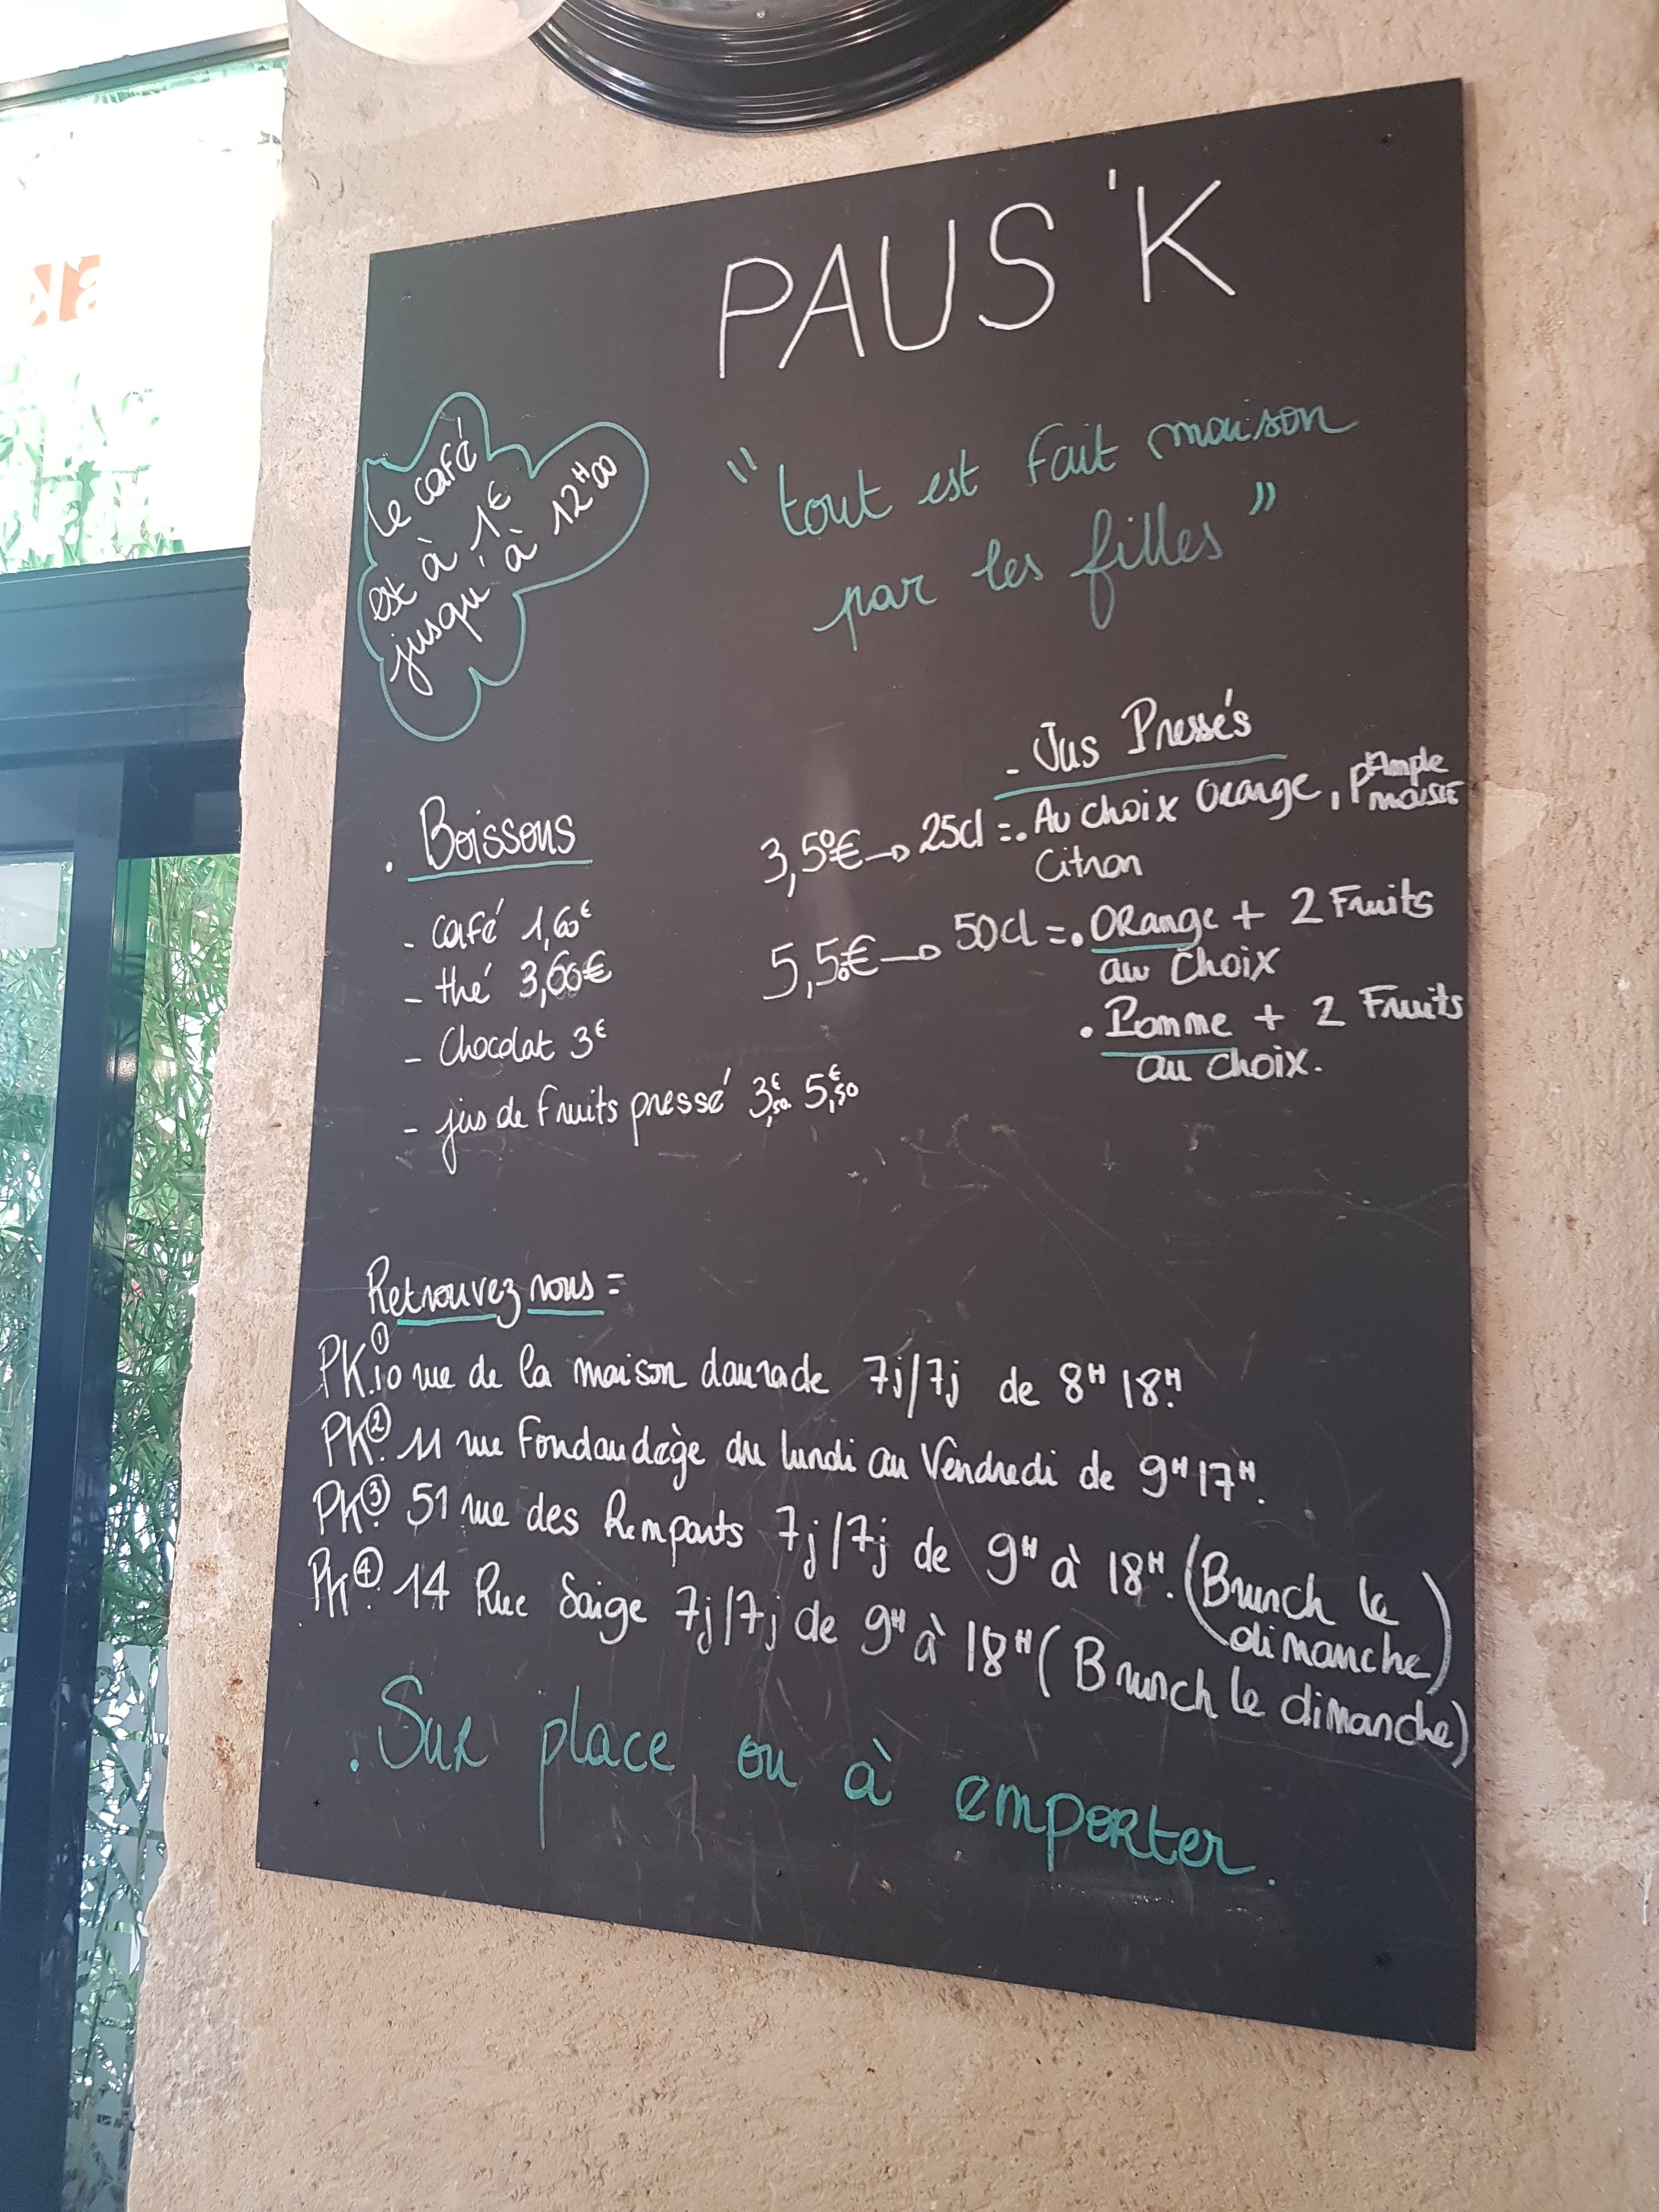 PAUS'K
le café
est à 1€
jusqu'à 12H00
"tout est fait maison
par les filles"
. Boissons
- café 1,60€
- thé 3,60€
- Chocolat 3€
- jus de fruits pressé 3€,50. 5€,50
- Jus Pressés
3,50€ → 25cl =. Au choix Orange, PAmple
mousse
Citron
5,50€ → 50cl =. ORange + 2 Fruits
au choix
. Pomme + 2 Fruits
au choix.
Retrouvez nous =
PK① 10 rue de la maison daurade 7j/7j de 8H 18H.
PK② 11 rue Fondaudège du lundi au Vendredi de 9H 17H.
PK③ 51 rue des Remparts 7j/7j de 9H à 18H. (Brunch le
dimanche)
PK④ 14 Rue Saige 7j/7j de 9H à 18H (Brunch le dimanche)
. Sur place ou à emporter.